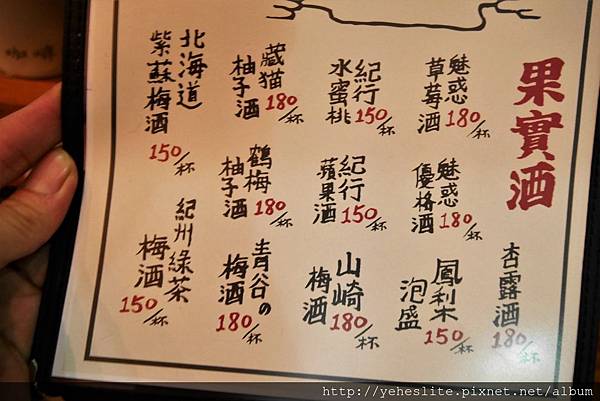 果實酒
魅惑
草莓酒 180/杯
紀行
水蜜桃 150/杯
藏猫
柚子酒 180/杯
北海道
紫蘇梅酒 150/杯
魅惑
優格酒 180/杯
紀行
蘋果酒 150/杯
鶴梅
柚子酒 180/杯
紀州綠茶
梅酒 150/杯
杏露酒 180/杯
鳳利木
泡盛 150/杯
山崎
梅酒 180/杯
青谷の
梅酒 180/杯
http://yeheslite.pixnet.net/album